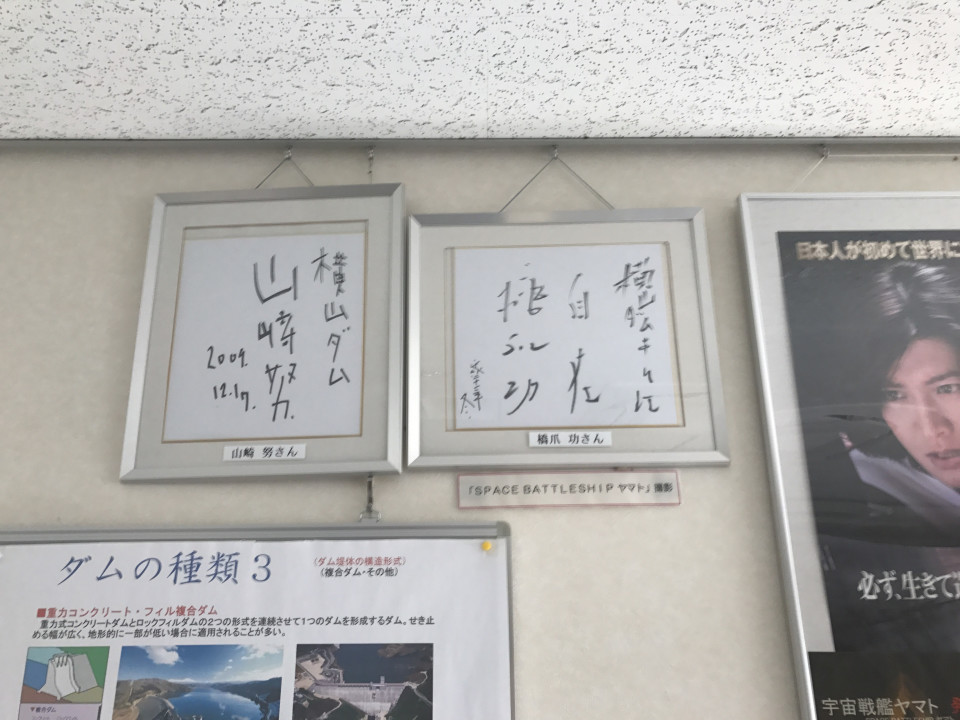 横山ダム
山﨑努
2009.
12.17.
山崎 努さん
横山ダムキリに
橋爪 功さん
「SPACE BATTLESHIP ヤマト」撮影
日本人が初めて世界に
必ず、生きて
宇宙戦艦ヤマト
ダムの種類3
(ダム堤体の構造形式)
(複合ダム・その他)
■重力コンクリート・フィル複合ダム
重力式コンクリートダムとロックフィルダムの2つの形式を連続させて1つのダムを形成するダム。せき止
める幅が広く、地形的に一部が低い場合に適用されることが多い。